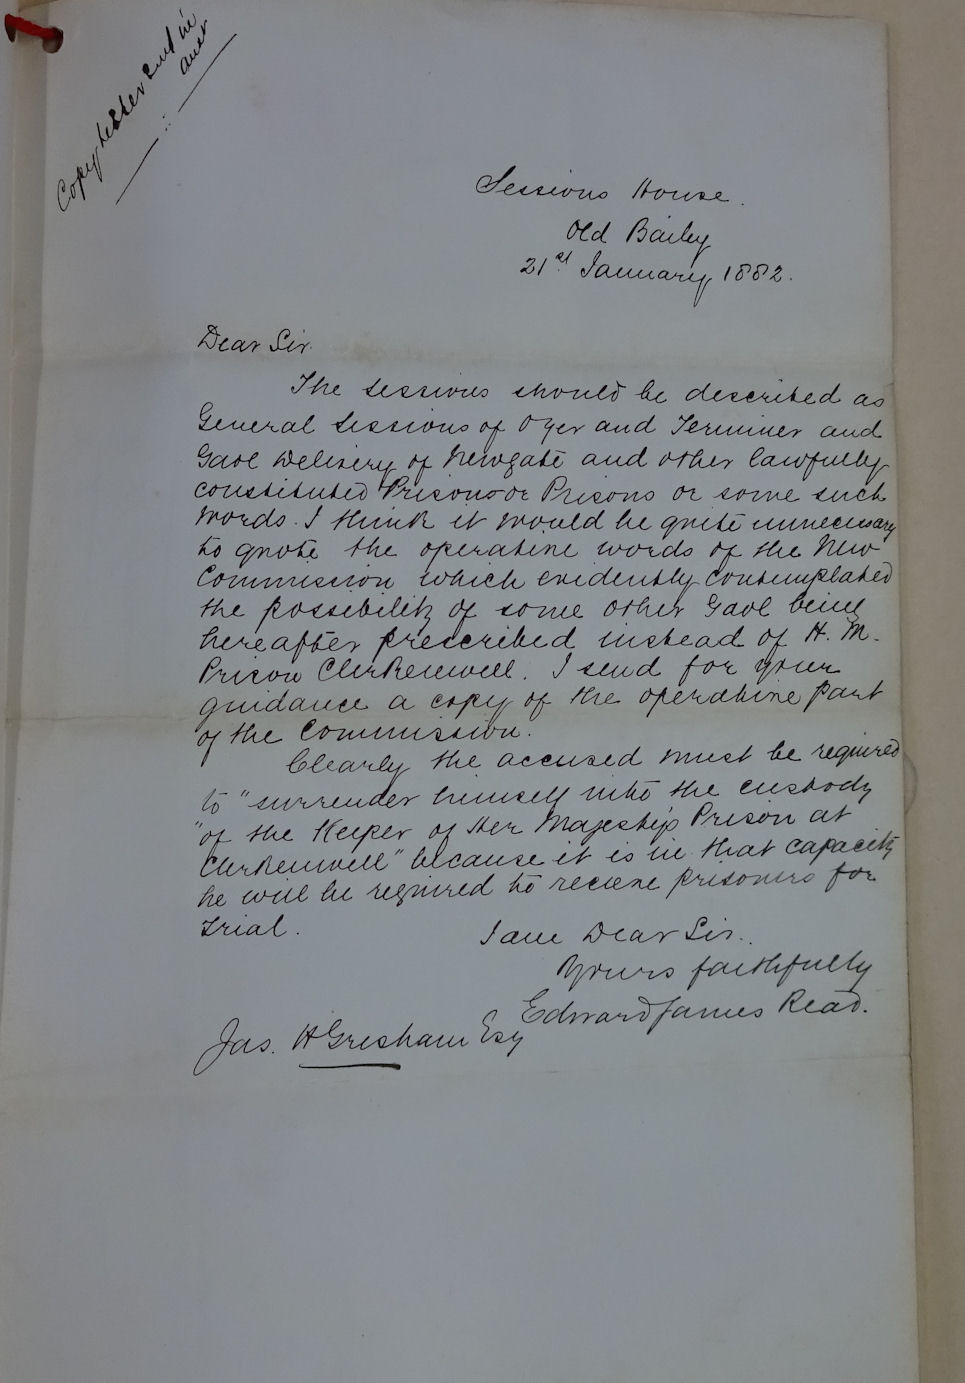 Copy letter sent in
answ
Sessions House.
Old Bailey
21st January, 1882.
Dear Sir.
The sessions should be described as
General Sessions of Oyer and Terminer and
Gaol Delivery of Newgate and other lawfully
constituted Prison or Prisons or some such
words. I think it would be quite unnecessary
to quote the operative words of the New
Commission which evidently contemplated
the possibility of some other Gaol being
hereafter prescribed instead of H. M.
Prison Clerkenwell. I send for your
guidance a copy of the operative part
of the Commission.
Clearly the accused must be required
to "surrender himself into the custody
"of the Keeper of Her Majesty's Prison at
Clerkenwell" because it is in that capacity
he will be required to receive prisoners for
trial.
I am Dear Sir.
Yours faithfully
Edward James Read.
Jas. H Gresham Esq